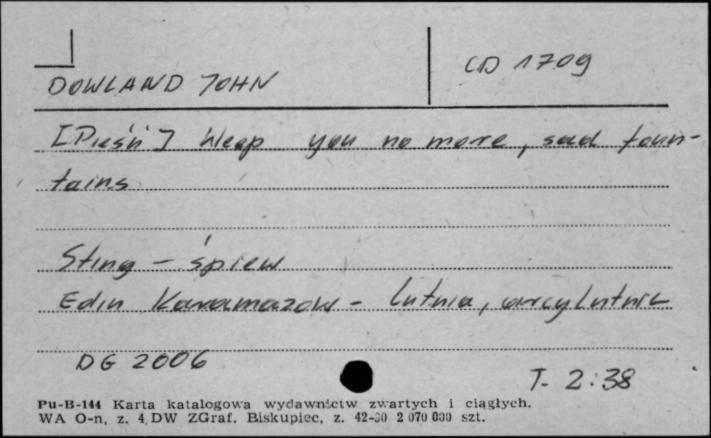 DOWLAND JOHN
CD 1709
[Pieśń] Weep you no more, sad foun-
tains
Sting - śpiew
Edin Karamazow - lutnia, arcylutnia
DG 2006
T- 2:38
Pu-B-144 Karta katalogowa wydawnictw zwartych i ciągłych.
WA O-n, z. 4 DW ZGraf. Biskupiec, z. 42-80 2 070 000 szt.